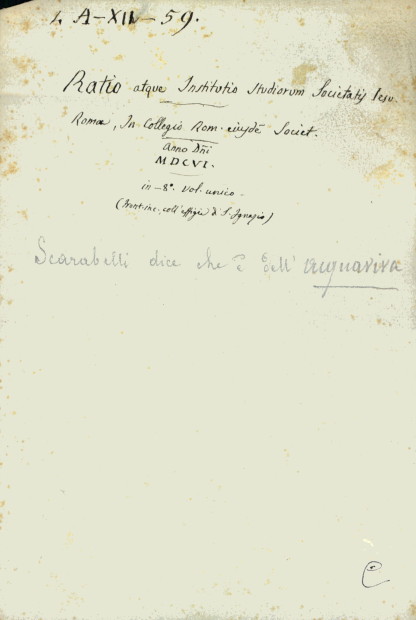 A-XII-59.
Ratio atque Institutio Studiorum Societatis Iesu.
Romæ, In Collegio Rom. eiusdē Societ.
Anno Dñi
MDCVI.
in-8°. vol. unico.
(Front. inc. coll'effigie di S. Ignazio)
Scarabelli dice che è dell' Acquaviva